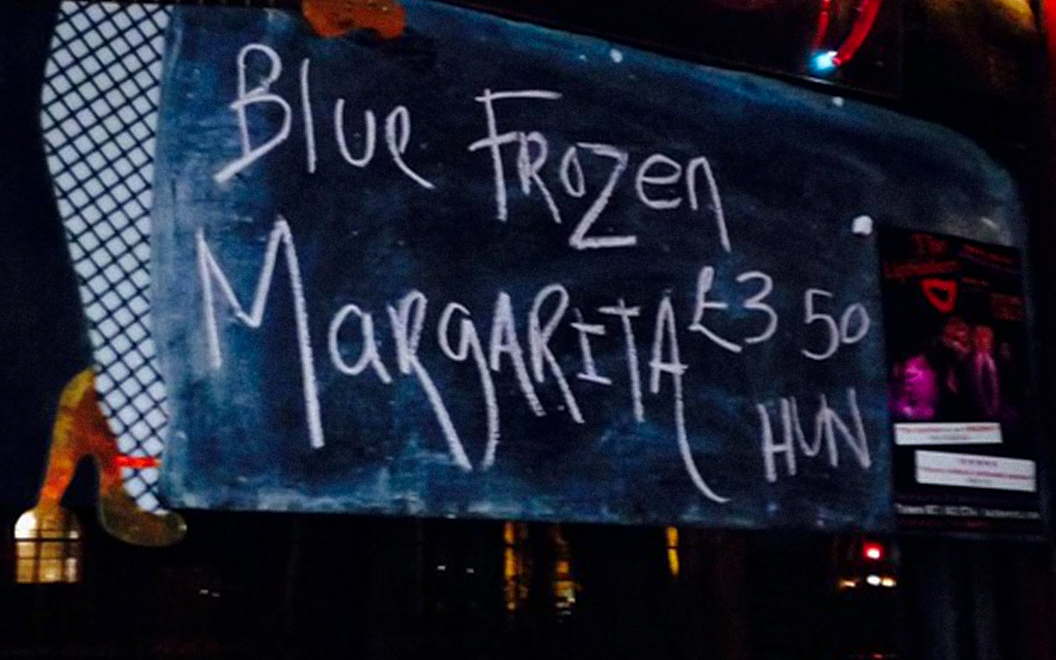 Blue FRoZen
MaRgARITA £3.50
HUN
The